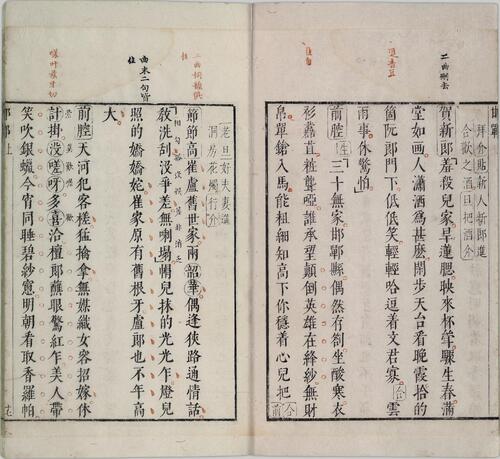 二曲刪去
拜介貼新人新郎進
合歡之酒旦把酒介
賀新郎羞殺兒家早蓮腮映來杯斝驟生春滿
堂如画人瀟洒爲甚麽閑步天台看晚霞拾的
箇阮郎門下低低笑輕輕哈逗着文君寡合雲
雨事休驚怕
前腔生三十無家邯鄲縣偶然存劄坐酸寒衣
衫藞苴粧聾啞誰承望顛倒英雄在絳紗無財
帛單鎗入馬能粗細知高下你穩着心兒把合前
老旦好夫妻進
洞房花燭行介
節節高崔盧舊世家兩韶華偶逢狹路通情話
敎洗刮没爭差無喇塌帽兒抹的光光乍燈兒
照的嬌嬌姹崔家原有舊根牙盧郎也不年高
大
曲末二句皆
前腔天河犯客槎猛擒拿無媒織女容招嫁休
計掛没嗟呀多喜洽檀郎蘸眼驚紅乍美人帶
笑吹銀蠟今宵同睡碧紗窻明朝看取香羅帕